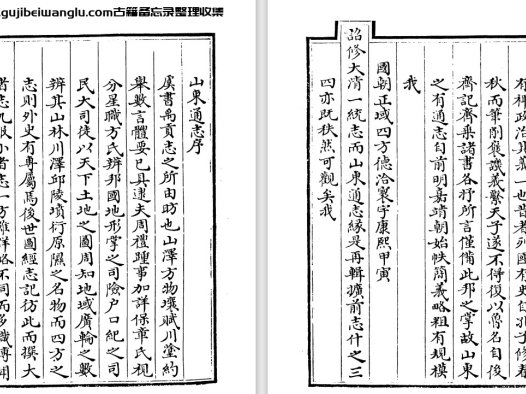 .gujibeiwanglu.com古籍备忘录整理收集
山東通志序
虞書禹貢志之所由昉也山澤方物壤賦川塗約
舉數言體要已具逮夫周禮踵事加詳保章氏視
分星職方氏辨邦國地形掌之司險戶口紀之司
民大司徒以天下土地之圖周知地域廣輪之數
辨其山林川澤邱陵墳衍原隰之名物而四方之
志則外史有專屬焉後世圖經志記彷此而撰大
者志九服小者志一方雖詳略不同而多識博聞
有稗政治其義一也昔者列國有史自孔子修春
秋而筆削褒譏義繫天子遂不得復以魯名自後
齊記齊乘諸書各抒所言僅備此邦之掌故山東
之有通志自前明嘉靖朝始帙簡義略粗有規模
我
國朝正域四方德洽寰宇康熙甲寅
詔修大清一統志而山東通志緣是再輯擴前志什之三
四亦既秩然可觀矣我